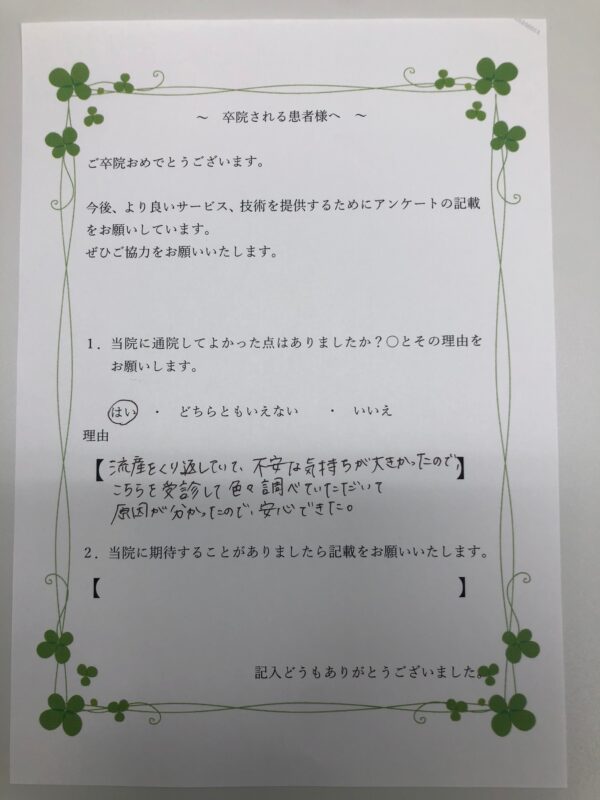 ～　卒院される患者様へ　～
ご卒院おめでとうございます。
今後、より良いサービス、技術を提供するためにアンケートの記載
をお願いしています。
ぜひご協力をお願いいたします。
１．当院に通院してよかった点はありましたか？〇とその理由を
お願いします。
はい　・　どちらともいえない　　・　いいえ
理由
【流産をくり返していて、不安な気持ちが大きかったので、】
こちらを受診して色々調べていただいて
原因が分かったので、安心できた。
２．当院に期待することがありましたら記載をお願いいたします。
【　　　　　　　　　　　　　　　　　　　　】
記入どうもありがとうございました。